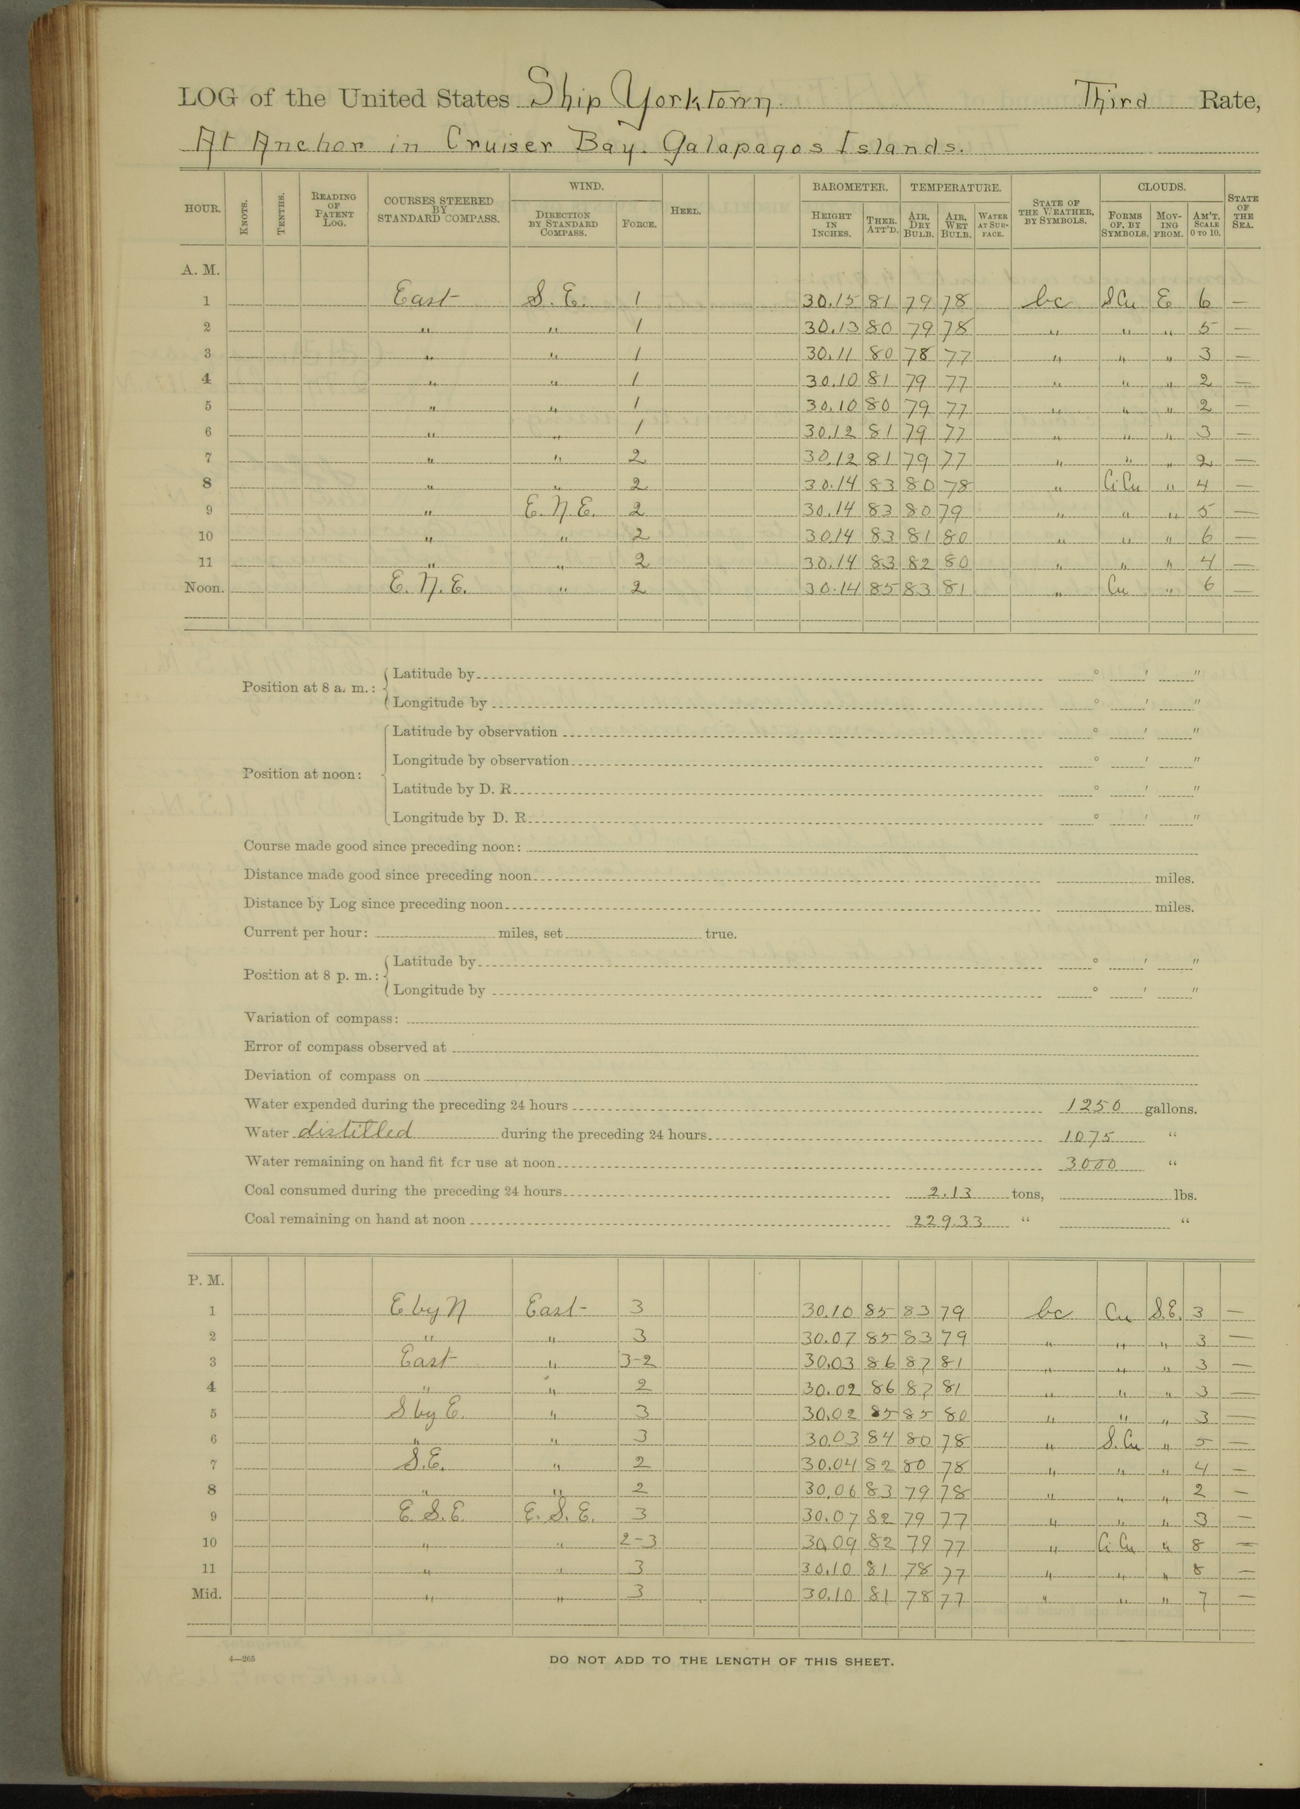 LOG of the United States Ship Yorktown. Third Rate,
At Anchor in Cruiser Bay. Galapagos Islands.
HOUR. KNOTS. TENTHS. READING OF PATENT LOG. COURSES STEERED BY STANDARD COMPASS. WIND. DIRECTION BY STANDARD COMPASS. FORCE. HEEL. BAROMETER. HEIGHT IN INCHES. THER. ATT'D. TEMPERATURE. AIR, DRY BULB. AIR, WET BULB. WATER AT SURFACE. STATE OF THE WEATHER, BY SYMBOLS. CLOUDS. FORMS OF, BY SYMBOLS. MOVING FROM. AM'T. SCALE 0 TO 10. STATE OF THE SEA.
A. M.
1 East S. E. 1 30.15 81 79 78 bc S Cu E 6 —
2 " " 1 30.13 80 79 78 " " " 5 —
3 " " 1 30.11 80 78 77 " " " 3 —
4 " " 1 30.10 81 79 77 " " " 2 —
5 " " 1 30.10 80 79 77 " " " 2 —
6 " " 1 30.12 81 79 77 " " " 3 —
7 " " 2 30.12 81 79 77 " " " 2 —
8 " " 2 30.14 83 80 78 " Ci Cu " 4 —
9 " E. N. E. 2 30.14 83 80 79 " " " 5 —
10 " " 2 30.14 83 81 80 " " " 6 —
11 " " 2 30.14 83 82 80 " " " 4 —
Noon. E. N. E. " 2 30.14 85 83 81 " Cu " 6 —
Position at 8 a. m.: Latitude by ° ' "
Longitude by ° ' "
Position at noon: Latitude by observation ° ' "
Longitude by observation ° ' "
Latitude by D. R. ° ' "
Longitude by D. R. ° ' "
Course made good since preceding noon:
Distance made good since preceding noon miles.
Distance by Log since preceding noon miles.
Current per hour: miles, set true.
Position at 8 p. m.: Latitude by ° ' "
Longitude by ° ' "
Variation of compass:
Error of compass observed at
Deviation of compass on
Water expended during the preceding 24 hours 1250 gallons.
Water distilled during the preceding 24 hours 1075 "
Water remaining on hand fit for use at noon 3000 "
Coal consumed during the preceding 24 hours 2.13 tons, lbs.
Coal remaining on hand at noon 229.33 " "
P. M.
1 E by N East 3 30.10 85 83 79 bc Cu S.E. 3 —
2 " " 3 30.07 85 83 79 " " " 3 —
3 East " 3-2 30.03 86 87 81 " " " 3 —
4 " " 2 30.02 86 87 81 " " " 3 —
5 S by E. " 3 30.02 85 85 80 " " " 3 —
6 " " 3 30.03 84 80 78 " S. Cu " 5 —
7 S.E. " 2 30.04 82 80 78 " " " 4 —
8 " " 2 30.06 83 79 78 " " " 2 —
9 E. S. E. E. S. E. 3 30.07 82 79 77 " " " 3 —
10 " " 2-3 30.09 82 79 77 " Ci Cu " 8 —
11 " " 3 30.10 81 78 77 " " " 8 —
Mid. " " 3 30.10 81 78 77 " " " 7 —
4—265
DO NOT ADD TO THE LENGTH OF THIS SHEET.